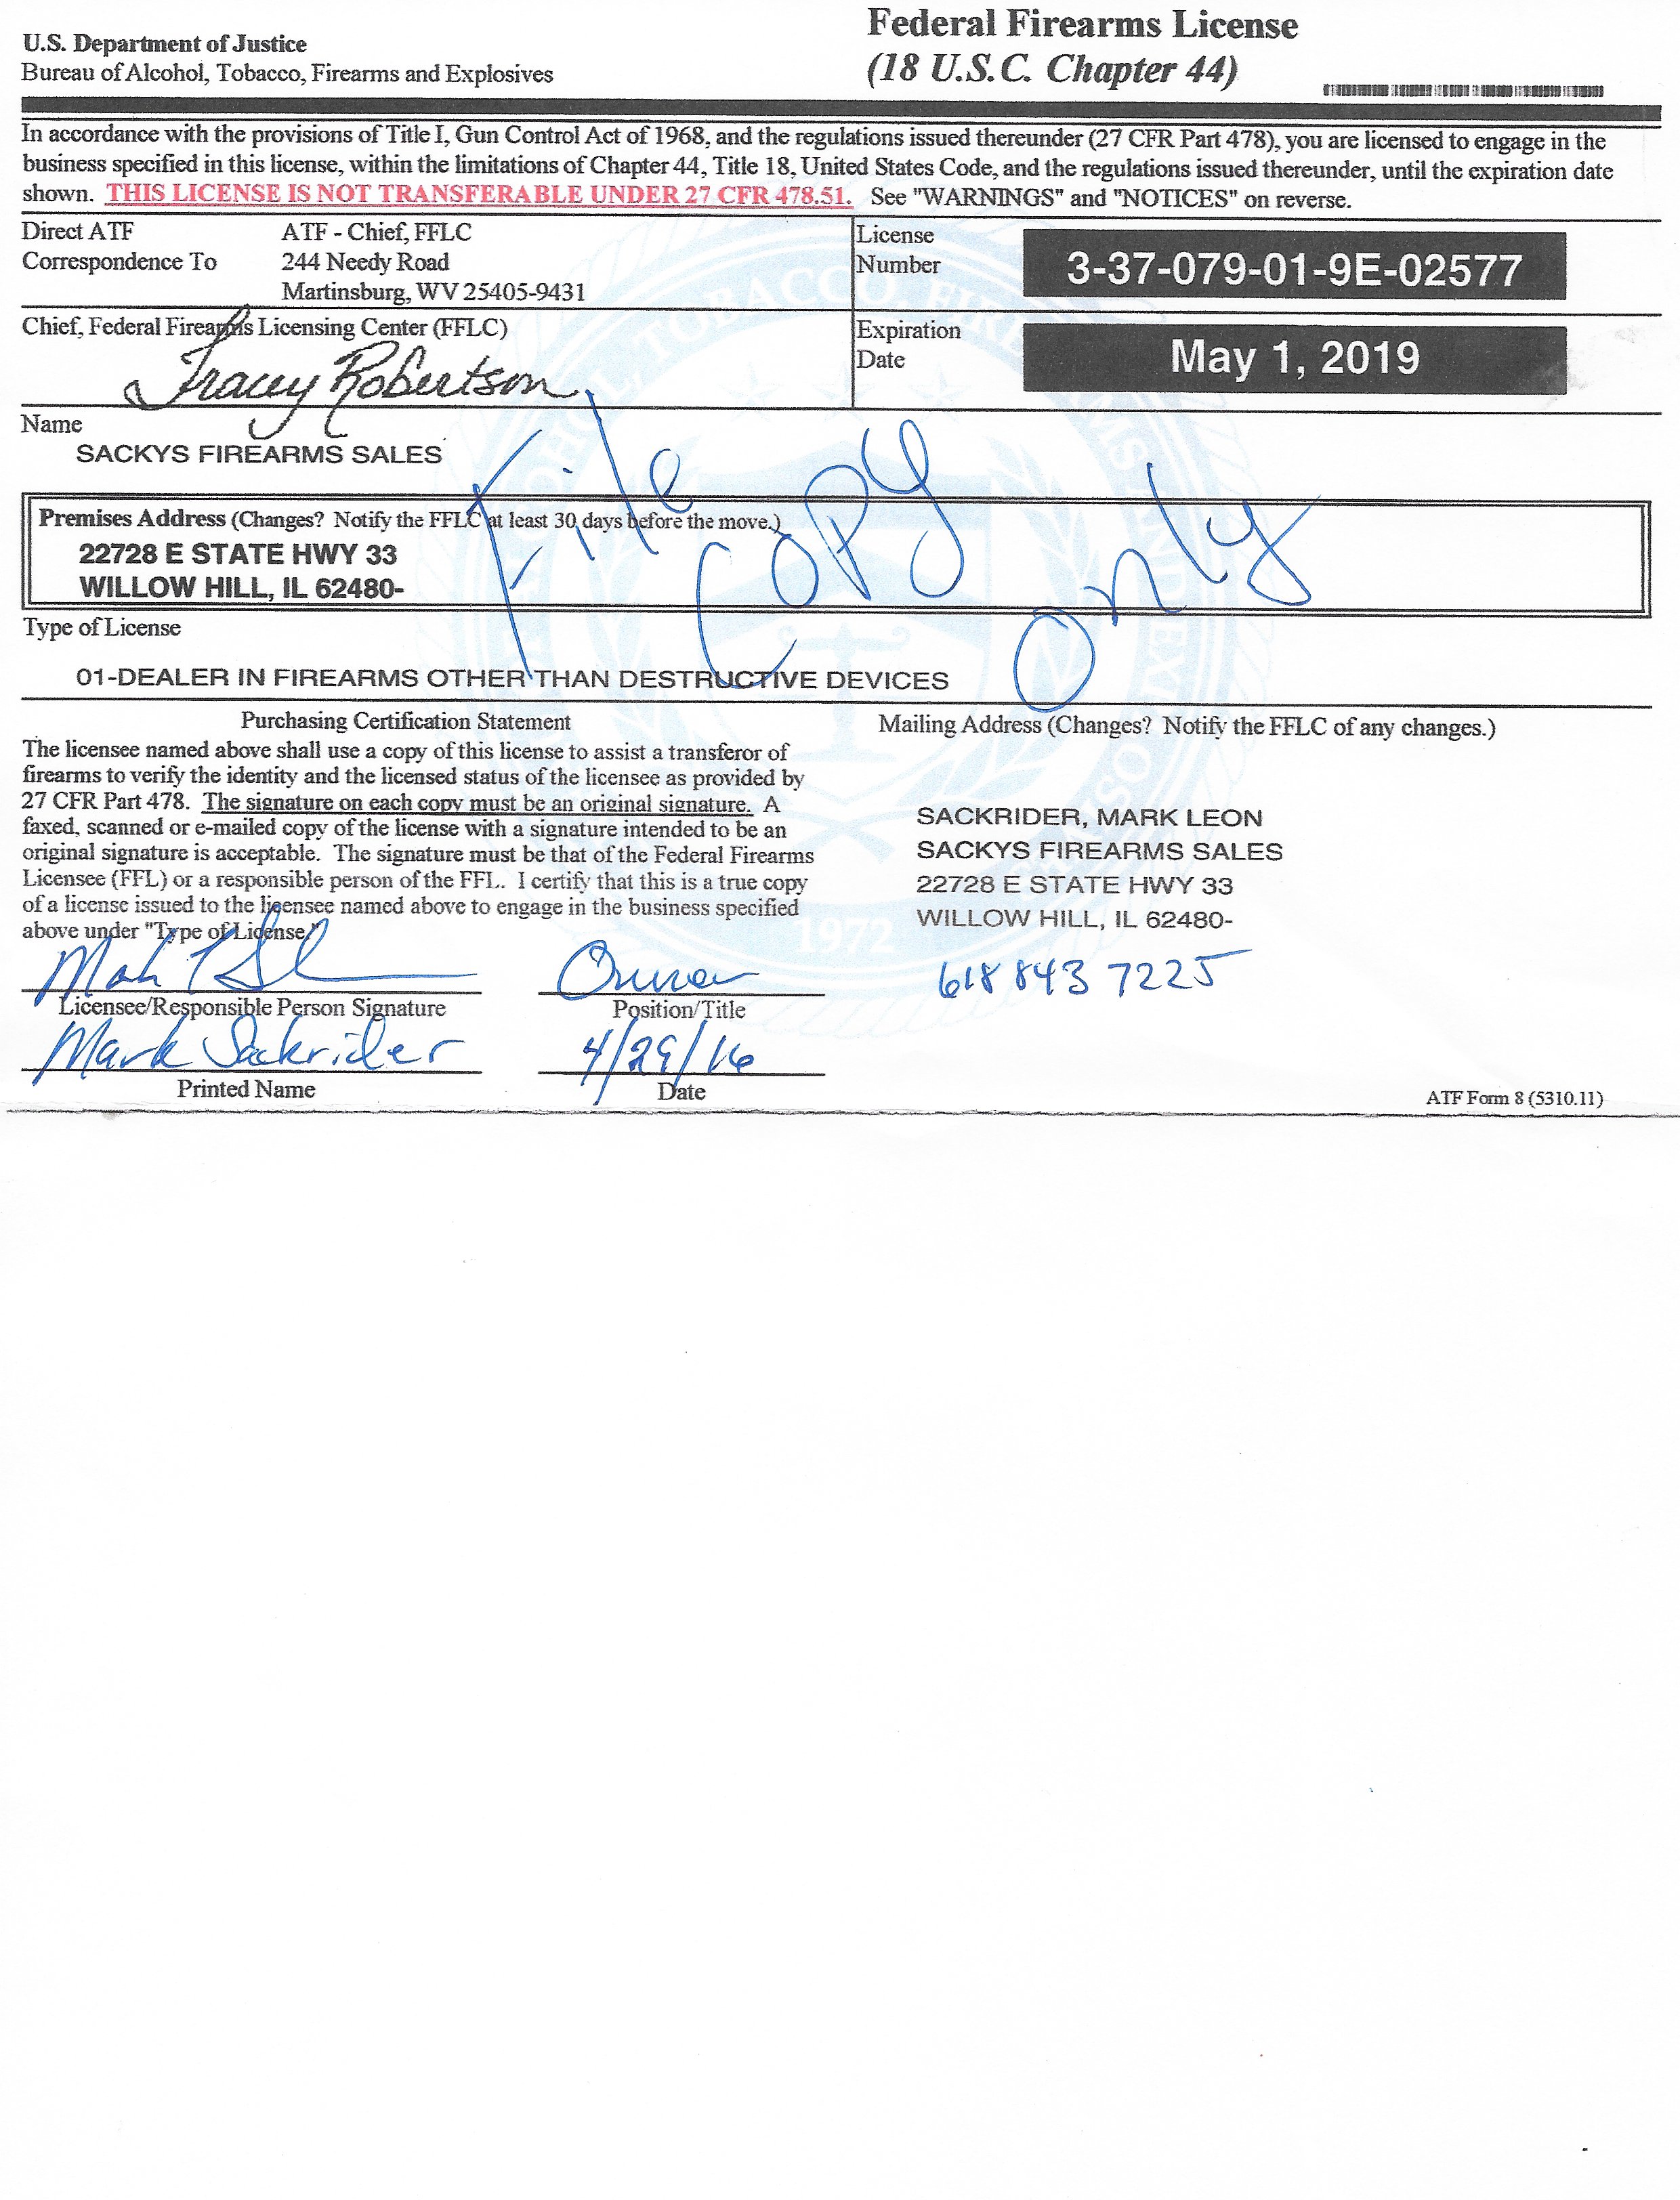 U.S. Department of Justice
Bureau of Alcohol, Tobacco, Firearms and Explosives
Federal Firearms License
(18 U.S.C. Chapter 44)
In accordance with the provisions of Title I, Gun Control Act of 1968, and the regulations issued thereunder (27 CFR Part 478), you are licensed to engage in the
business specified in this license, within the limitations of Chapter 44, Title 18, United States Code, and the regulations issued thereunder, until the expiration date
shown. THIS LICENSE IS NOT TRANSFERABLE UNDER 27 CFR 478.51. See "WARNINGS" and "NOTICES" on reverse.
Direct ATF
Correspondence To
ATF - Chief, FFLC
244 Needy Road
Martinsburg, WV 25405-9431
License
Number
3-37-079-01-9E-02577
Chief, Federal Firearms Licensing Center (FFLC)
Tracey Robertson
Expiration
Date
May 1, 2019
Name
SACKYS FIREARMS SALES
File Copy Only
Premises Address (Changes? Notify the FFLC at least 30 days before the move.)
22728 E STATE HWY 33
WILLOW HILL, IL 62480-
Type of License
01-DEALER IN FIREARMS OTHER THAN DESTRUCTIVE DEVICES
Purchasing Certification Statement
The licensee named above shall use a copy of this license to assist a transferor of
firearms to verify the identity and the licensed status of the licensee as provided by
27 CFR Part 478. The signature on each copy must be an original signature. A
faxed, scanned or e-mailed copy of the license with a signature intended to be an
original signature is acceptable. The signature must be that of the Federal Firearms
Licensee (FFL) or a responsible person of the FFL. I certify that this is a true copy
of a license issued to the licensee named above to engage in the business specified
above under "Type of License."
Mailing Address (Changes? Notify the FFLC of any changes.)
SACKRIDER, MARK LEON
SACKYS FIREARMS SALES
22728 E STATE HWY 33
WILLOW HILL, IL 62480-
618 843 7225
1972
Owner
Licensee/Responsible Person Signature
Position/Title
Mark Sackrider
4/29/16
Printed Name
Date
ATF Form 8 (5310.11)